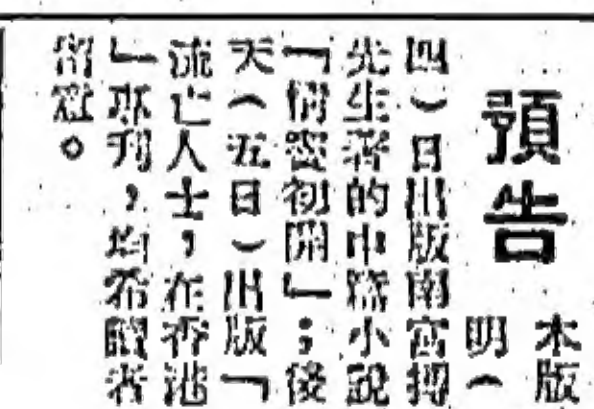 預告
本版
明（
四）日出版南宮搏
先生著的中篇小說
「情竇初開」；後
天（五日）出版「
流亡人士，在香港
」專刊，均希讀者
留意。